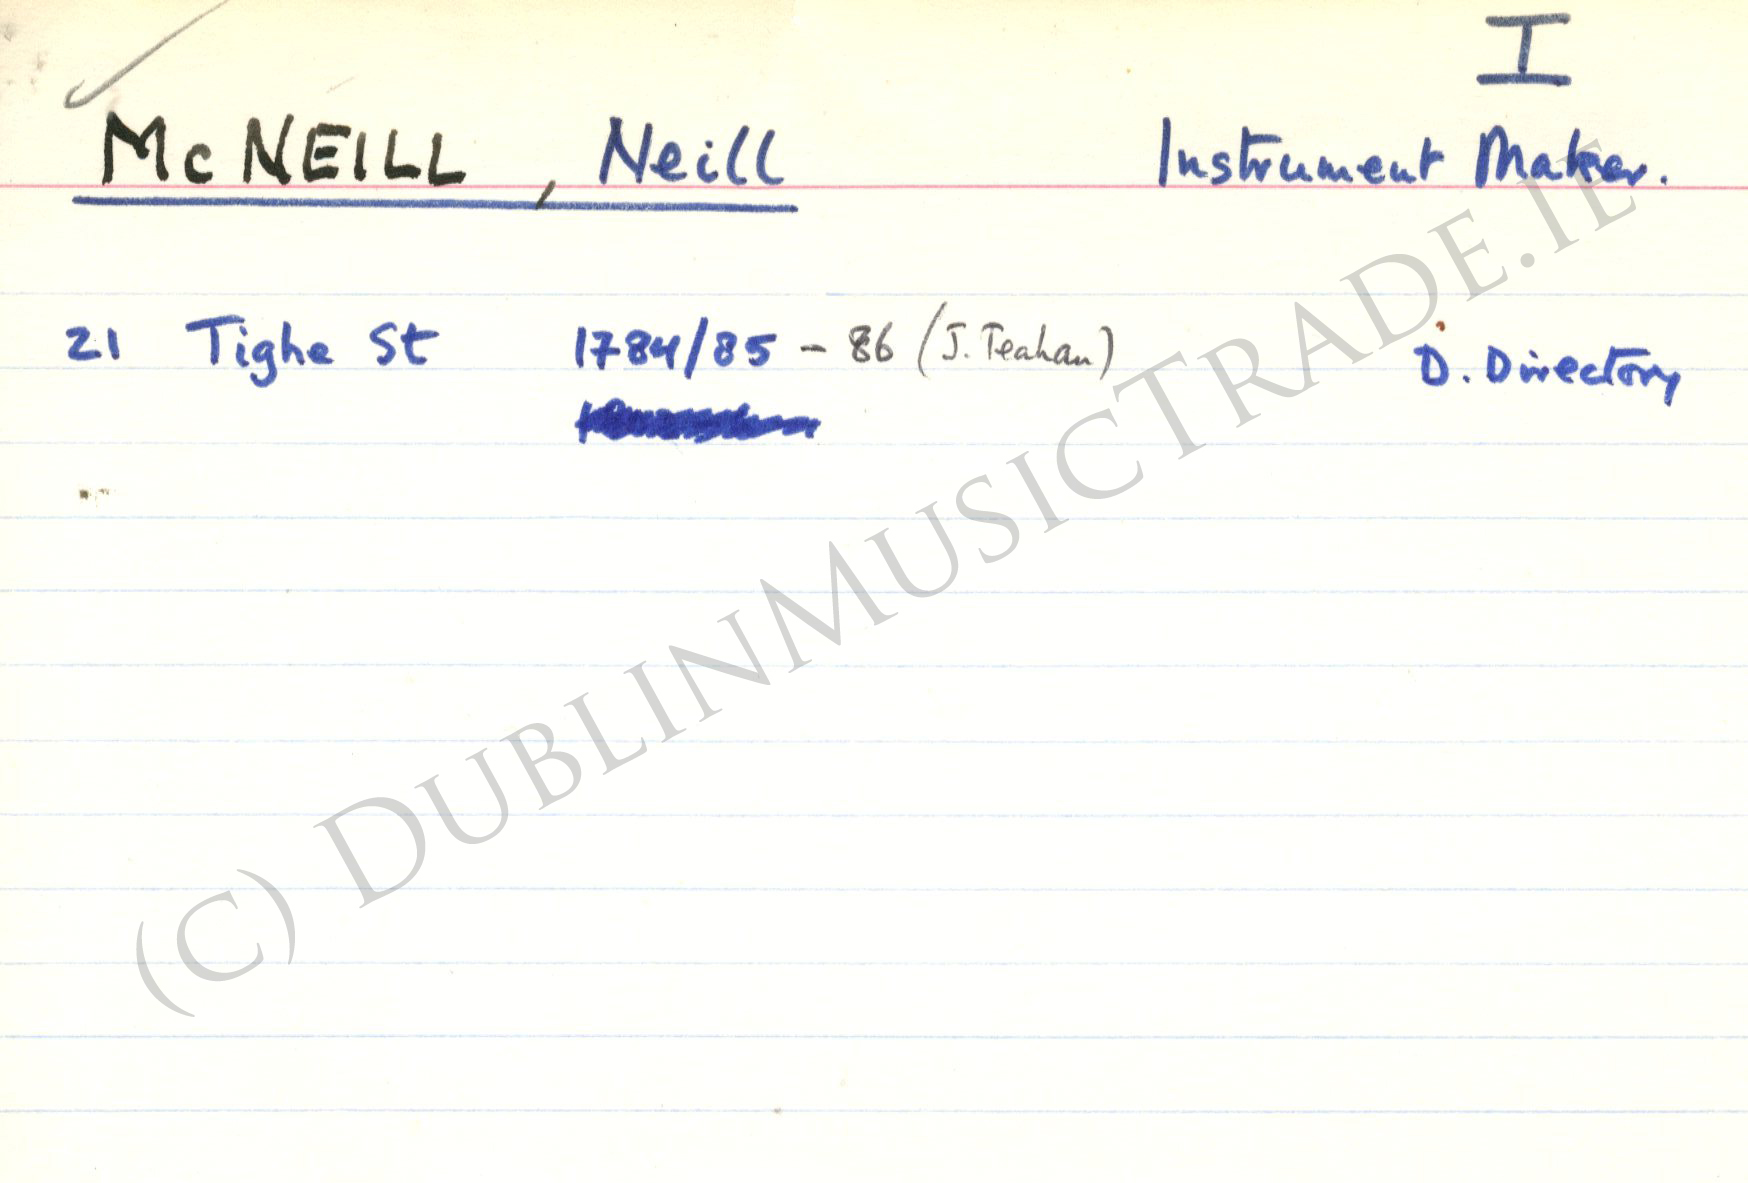 I
McNEILL, Neill Instrument Maker.
21 Tighe St 1784/85 - 86 (J. Teahan) D. Directory
(C) DUBLINMUSICTRADE.IE